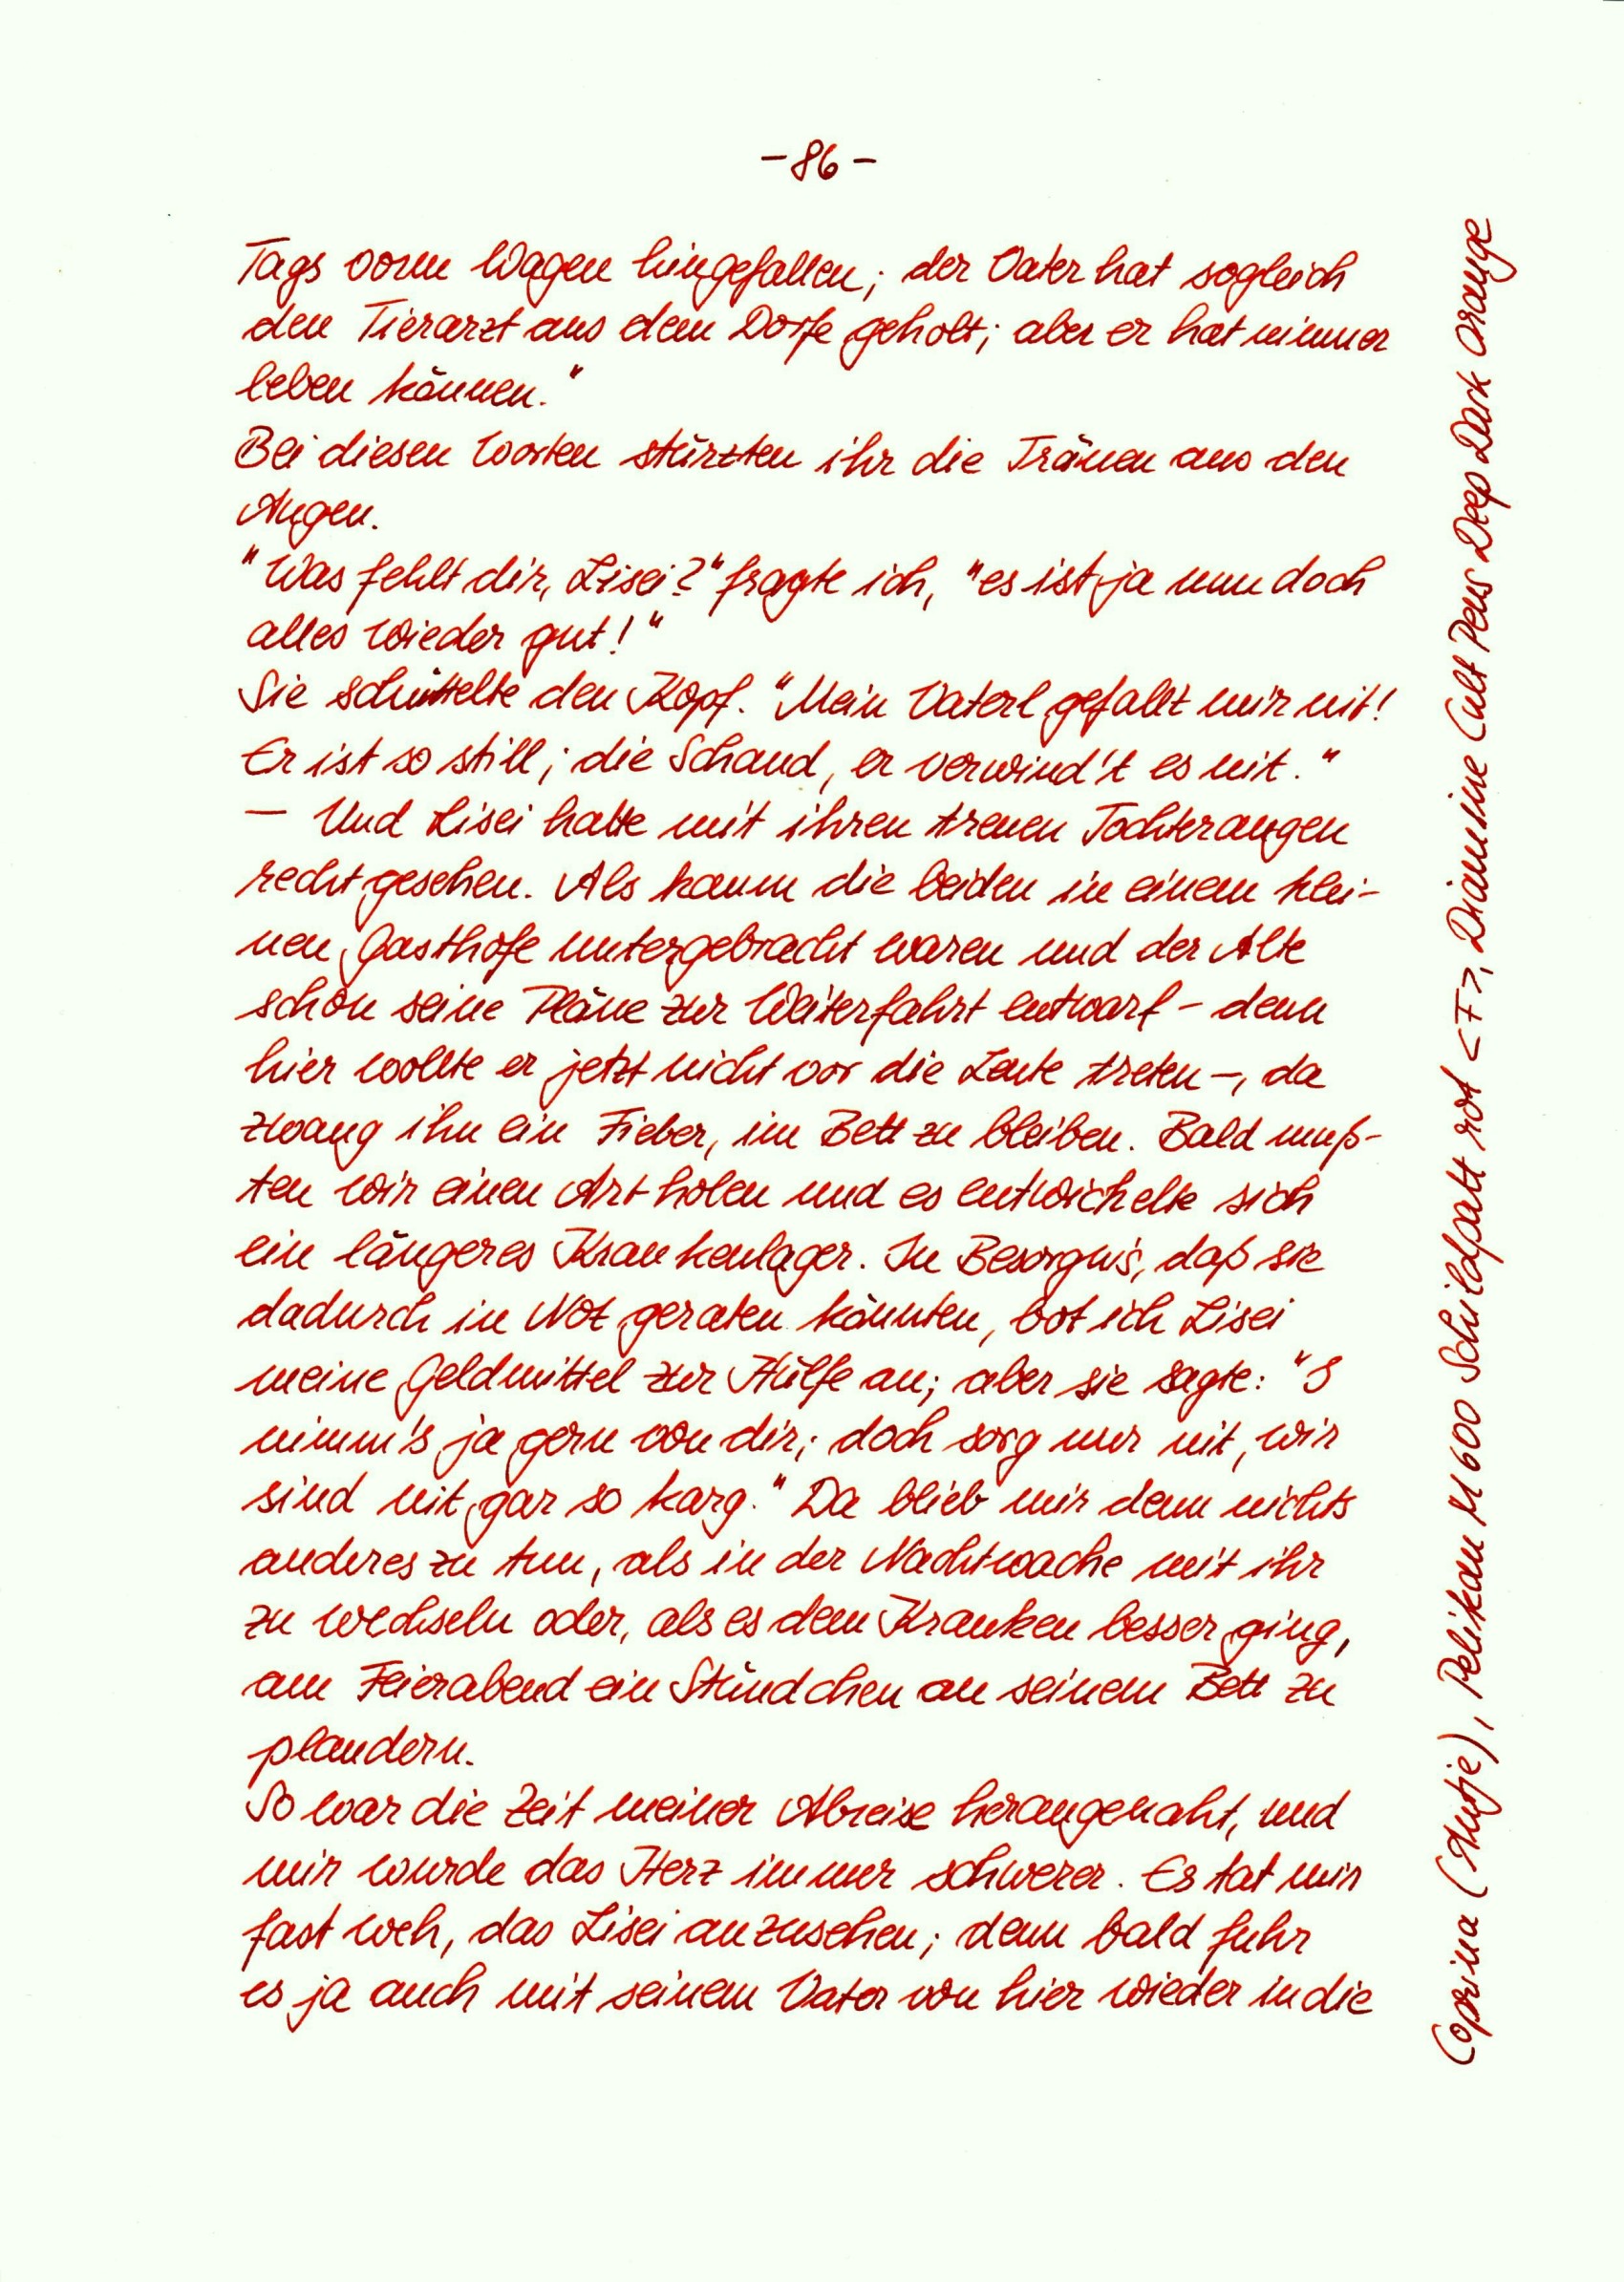 -86-
Tags vorm Wagen hingefallen; der Vater hat sogleich
den Tierarzt aus dem Dorfe geholt; aber er hat nimmer
leben können."
Bei diesen Worten stürzten ihr die Tränen aus den
Augen.
"Was fehlt dir, Lisei?" fragte ich, "es ist ja nun doch
alles wieder gut!"
Sie schüttelte den Kopf. "Mein Vaterl gefallt mir nit!
Er ist so still; die Schand, er verwind't es nit."
— Und Lisei hatte mit ihren treuen Tochteraugen
recht gesehen. Als kaum die beiden in einem klei-
nen Gasthofe untergebracht waren und der Alte
schon seine Pläne zur Weiterfahrt entwarf - denn
hier wollte er jetzt nicht vor die Leute treten -, da
zwang ihn ein Fieber, im Bett zu bleiben. Bald muß-
ten wir einen Art holen und es entwickelte sich
ein längeres Krankenlager. In Besorgnis, daß sie
dadurch in Not geraten könnten, bot ich Lisei
meine Geldmittel zur Hülfe an; aber sie sagte: "I
nimm's ja gern von dir; doch sorg nur nit, wir
sind nit gar so karg." Da blieb mir denn nichts
anderes zu tun, als in der Nachtwache mit ihr
zu wechseln oder, als es dem Kranken besser ging,
am Feierabend ein Stündchen an seinem Bett zu
plaudern.
So war die Zeit meiner Abreise herangenaht, und
mir wurde das Herz immer schwerer. Es tat mir
fast weh, das Lisei anzusehen; denn bald fuhr
es ja auch mit seinem Vater von hier wieder in die
Coprina (Antje), Pelikan M 600 Schildpatt rot <F>, Diamine Cult Pens Deep Dark Orange